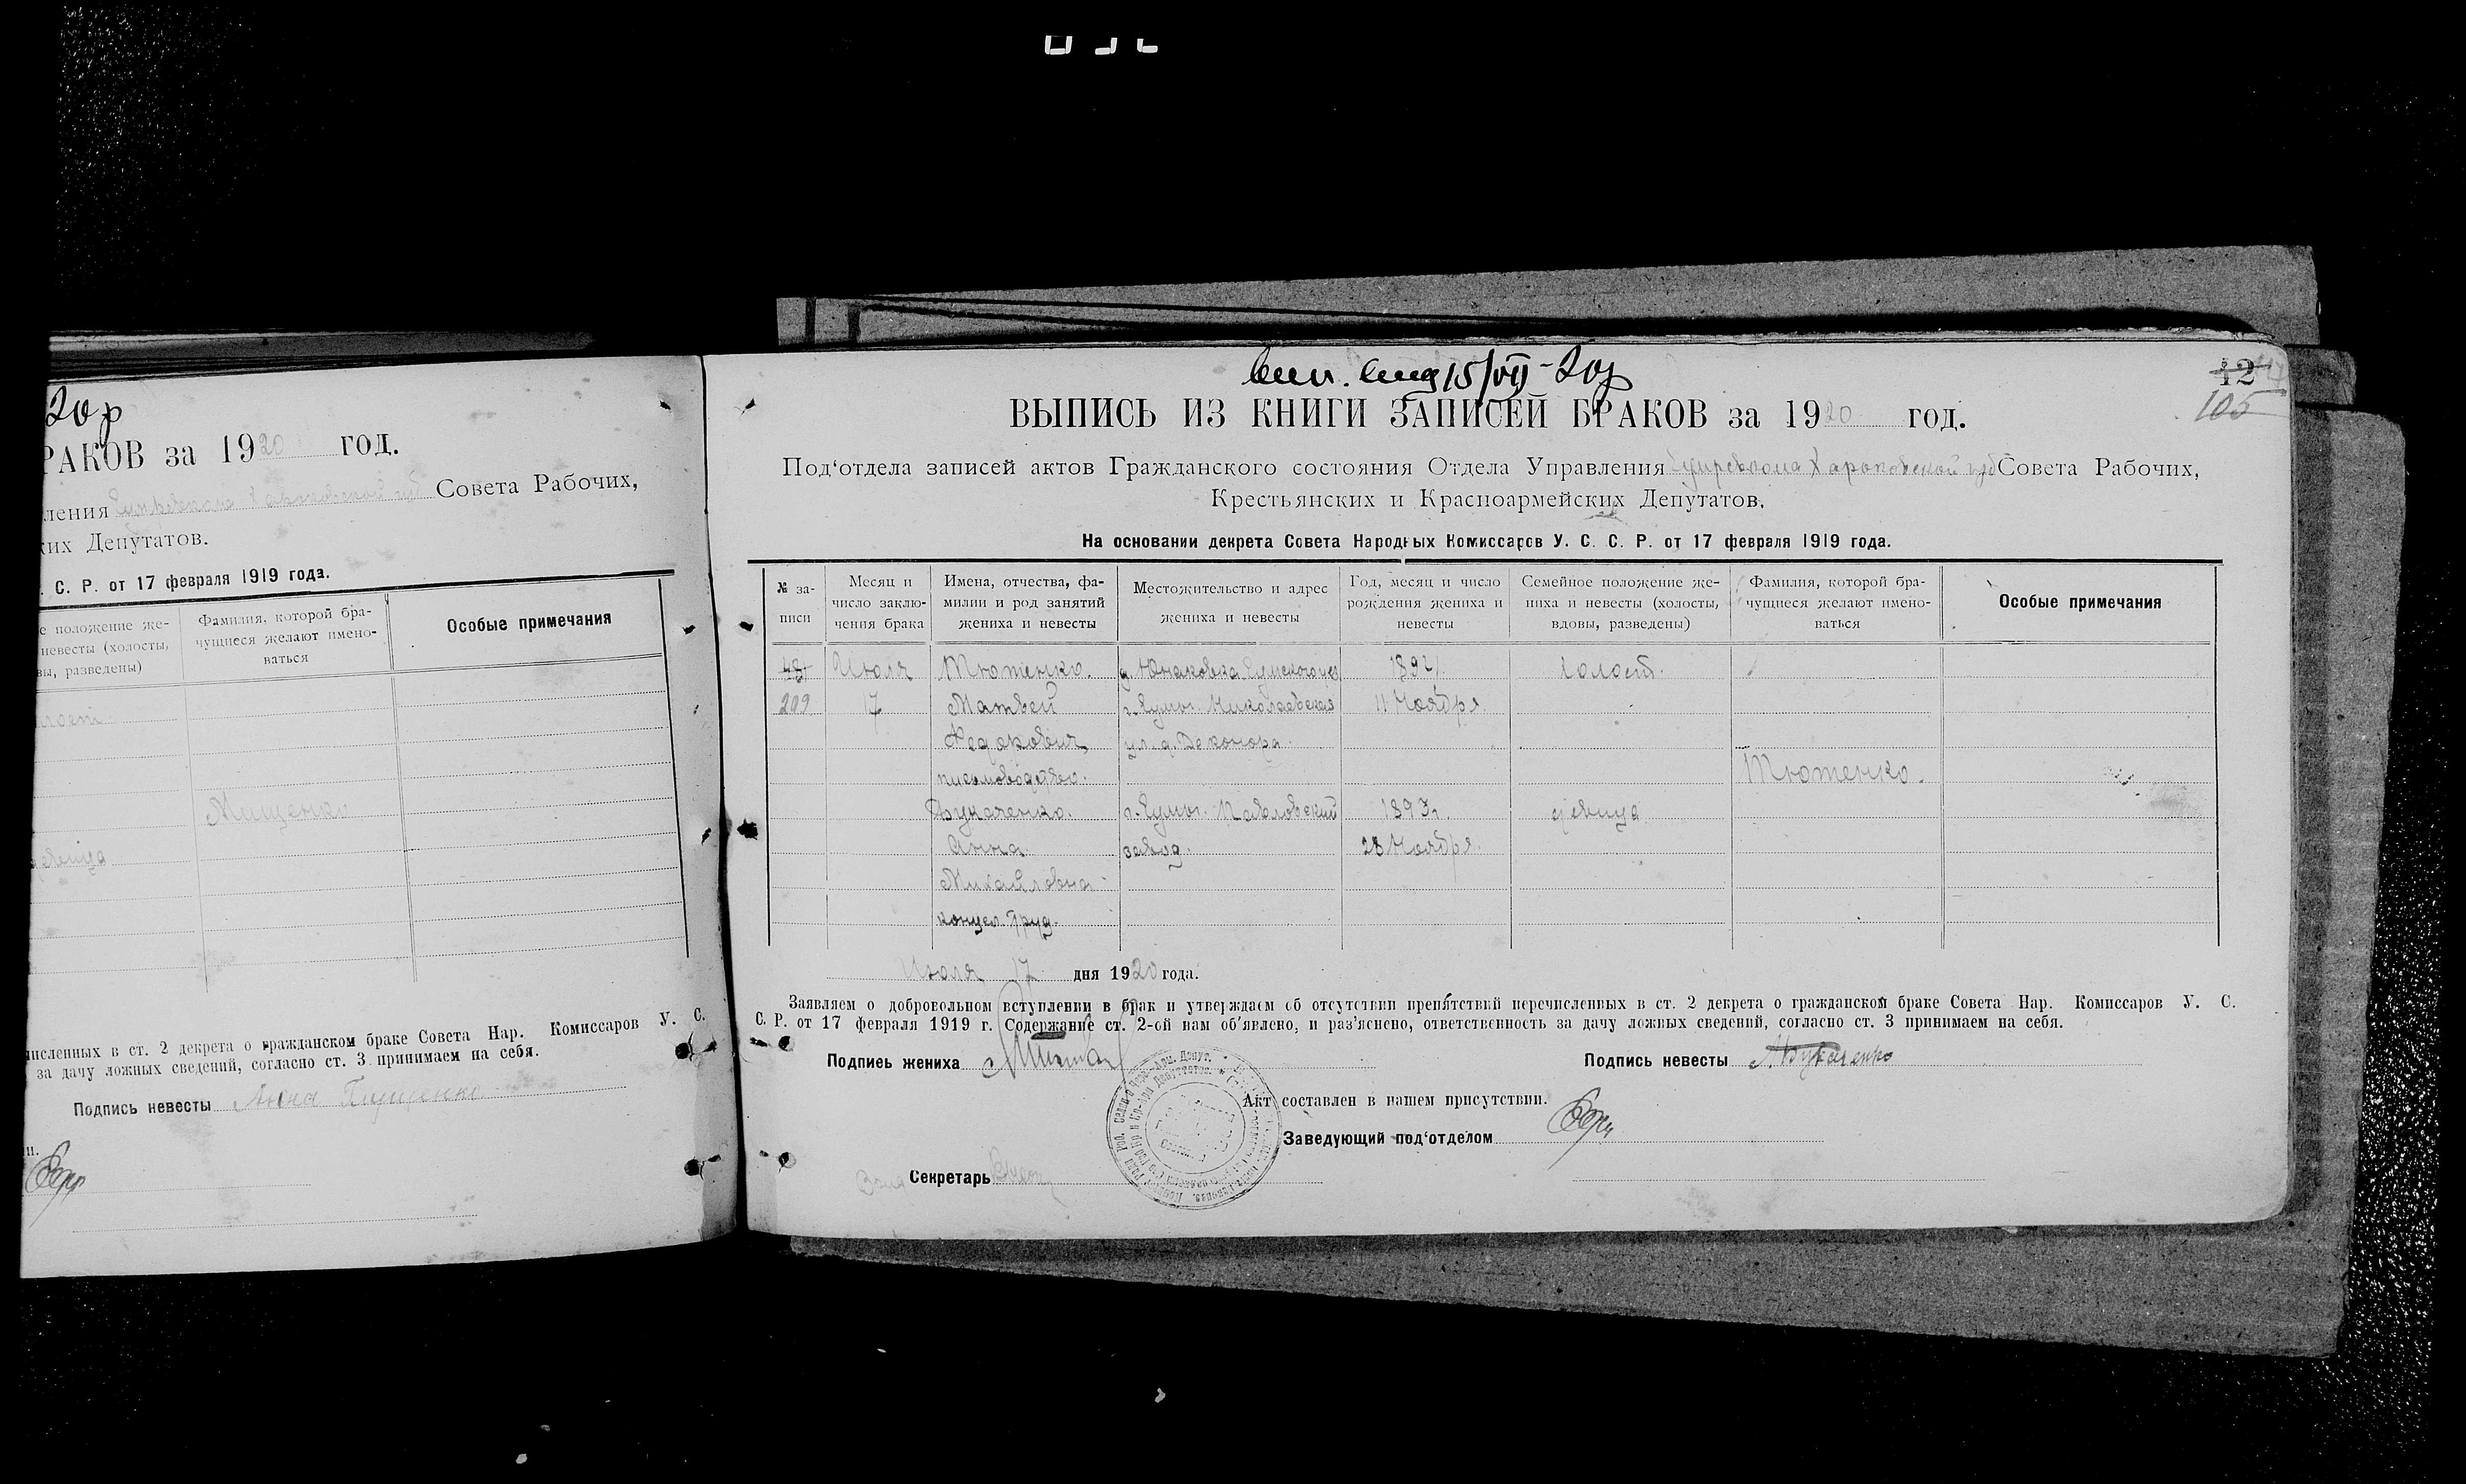 20 р
РАКОВ за 1920 год.
ления Харьковской губ Совета Рабочих,
ких Депутатов.
. С. Р. от 17 февраля 1919 года.
е положение же-
невесты (холосты,
вы, разведены)
Фамилия, которой бра-
чущиеся желают имено-
ваться
Особые примечания
Мищенко
девица
численных в ст. 2 декрета о гражданском браке Совета Нар. Комиссаров У. С.
за дачу ложных сведений, согласно ст. 3 принимаем на себя.
Подпись невесты Анна
и.
15/VII-20 р
12
105
ВЫПИСЬ ИЗ КНИГИ ЗАПИСЕЙ БРАКОВ за 1920 год.
Под‘отдела записей актов Гражданского состояния Отдела Управления Сумревкома Харьковской губ Совета Рабочих,
Крестьянских и Красноармейских Депутатов.
На основании декрета Совета Народных Комиссаров У. С. С. Р. от 17 февраля 1919 года.
№ за-
писи
Месяц и
число заклю-
чения брака
Имена, отчества, фа-
милии и род занятий
жениха и невесты
Местожительство и адрес
жениха и невесты
Год, месяц и число
рождения жениха и
невесты
Семейное положение же-
ниха и невесты (холосты,
вдовы, разведены)
Фамилия, которой бра-
чущиеся желают имено-
ваться
Особые примечания
48 Июля Тютенко. Юнаковка Сумского у. холост.
209 17 Матвей г. Сумы. Николаевская 11 Ноября
Федорович ул. д.
письмоводство. Тютенко.
Букаченко. г. Сумы. Павловский 1893 г. девица
Анна завод. 28 Ноября.
Михайловна
концел. труд.
Июля 17 дня 1920 года.
Заявляем о добровольном вступлении в брак и утверждаем об отсутствии препятствий перечисленных в ст. 2 декрета о гражданской браке Совета Нар. Комиссаров У. С.
С. Р. от 17 февраля 1919 г. Содержание ст. 2-ой нам об'явлено, и раз'яснено, ответственность за дачу ложных сведений, согласно ст. 3 принимаем на себя.
Подпись жениха
Подпись невесты А. Букаченко
Акт составлен в нашем присутствии.
Заведующий под‘отделом
Секретарь